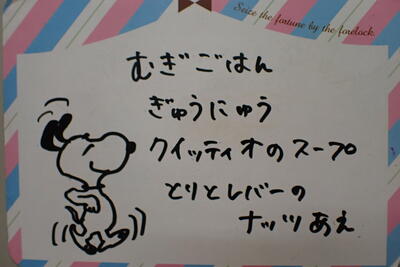 Seize the fortune by the forelock.
むぎごはん
ぎゅうにゅう
クイッティオのスープ
とりとレバーの
ナッツあえ